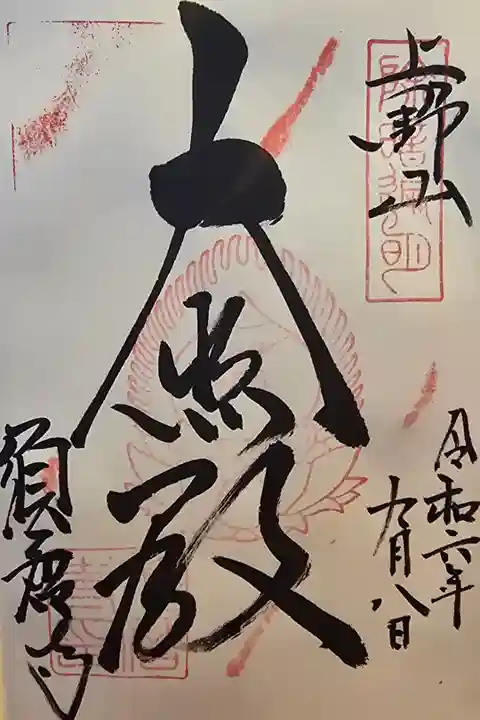 上野山
令和六年
九月八日
大悲殿
須磨寺